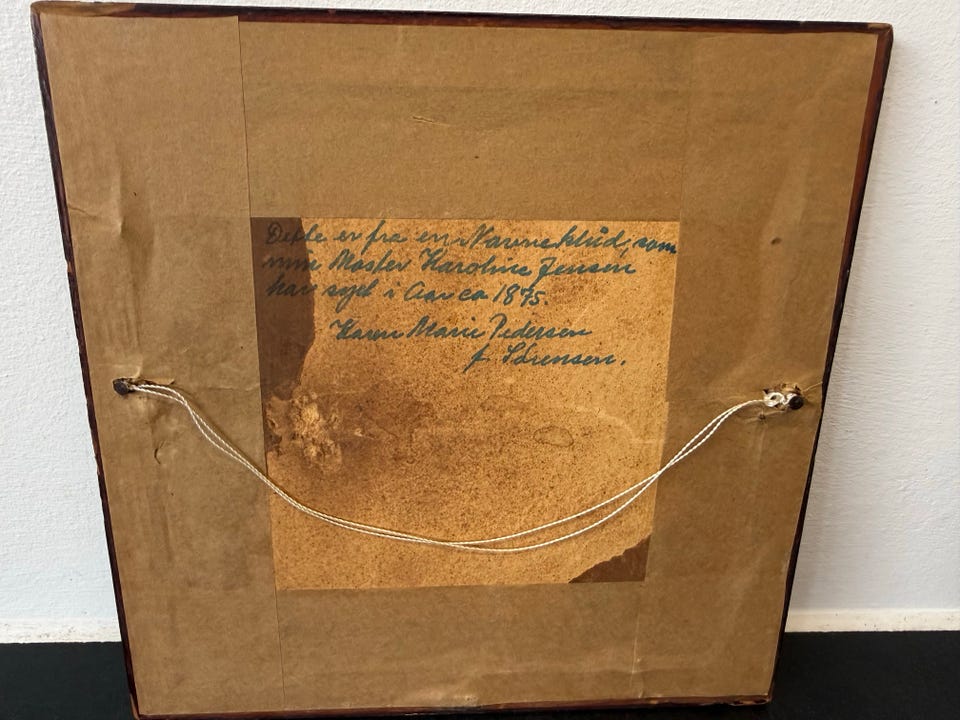 Dette er fra en Navneklud, som
min Moster Karoline Jensen
har syet i Aar ca 1875.
Karen Marie Pedersen
f. Sørensen.